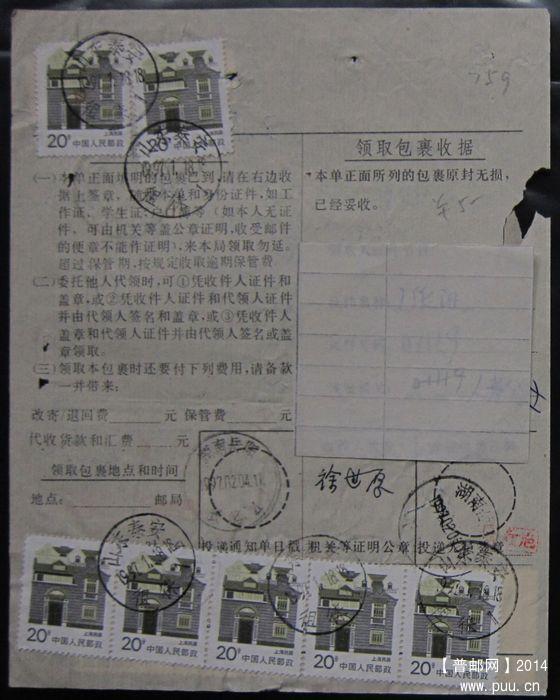 山东泰安
1997.1.18.18
20分 中国人民邮政
20分 中国人民邮政
山东泰安
1997.1.18.18
领取包裹收据
本单正面所列的包裹原封无损,
已经妥收。
(一)本单正面填明的包裹已到,请在右边收
据上签章,随带本单和身份证件,如工
作证、学生证、户口簿等(如本人无证
件,可由机关等盖公章证明,收受邮件
的便章不能作证明),来本局领取勿延。
超过保管期,按规定收取逾期保管费。
(二)委托他人代领时,可①凭收件人证件和
盖章,或②凭收件人证件和代领人证件
并由代领人签名和盖章,或③凭收件人
盖章和代领人证件并由代领人签名或盖
章领取。
(三)领取本包裹时还要付下列费用,请备款
一并带来:
改寄/退回费 元 保管费 元
代收货款和汇费 元
领取包裹地点和时间
地点: 邮局
1997.02.04.1
徐世厚
湖南
投递通知单日戳 机关等证明公章 投递
章
山东泰安
1997.1.18.18
上海民居
20分 中国人民邮政
上海民居
20分 中国人民邮政
上海民居
20分 中国人民邮政
上海民居
20分 中国人民邮政
上海民居
20分 中国人民邮政
【普邮网】2014
www.puu.cn